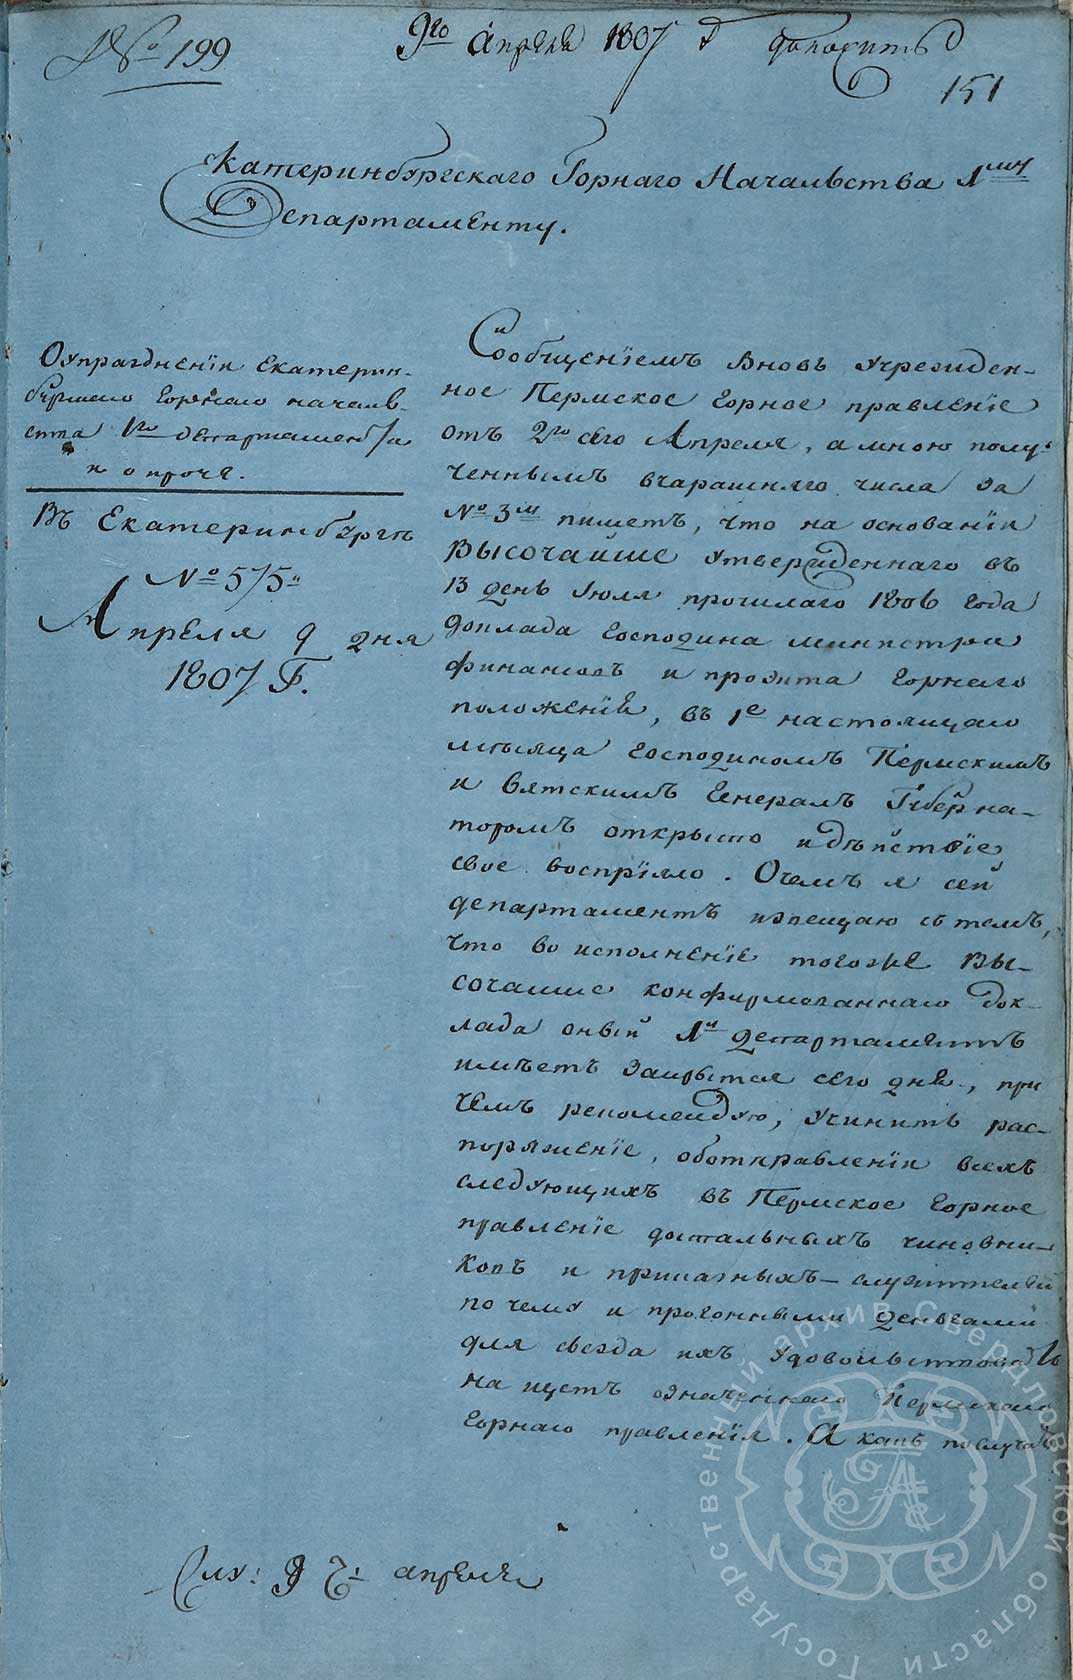 № 199
9го Апреля 1807 доложить
151
Екатеринбургскаго Горнаго Начальства 1му
Департаменту.
О упразднении Екатерин-
бургскаго горнаго началь-
ства 1го департамента
и о проч.
Въ Екатеринбурге
№ 575
Апреля 9 дня
1807 Г.
Сообщенїемъ вновь учрежден-
ное Пермское горное правленїе
отъ 2го сего Апреля, а мною полу-
ченнымъ вчерашняго числа за
№ 3м пишетъ, что на основанїи
ВЫСОЧАЙШЕ утвержденнаго въ
13 день Июля прошлаго 1806 года
доклада господина министра
финансовъ и проэкта горнаго
положенїя, въ 1е настоящаго
месяца господиномъ Пермскимъ
и вятскимъ генералъ Губерна-
торомъ открыто и действїе
свое воспрїяло. О чемъ я сей
департаментъ извещаю съ темъ,
что во исполненїе тогоже Вы-
сочайше конфирмованнаго док-
лада оный 1й департаментъ
имеетъ закрытся сего дня, при
чемъ рекомендую, учинить рас-
поряженїе, оботправленїи всехъ
следующихъ въ Пермское горное
правленїе достальныхъ чиновни-
ковъ и приказныхъ служителей
почему и прогонными деньгами
для съезда ихъ удовольствовать
на щетъ означеннаго Пермскаго
горнаго правленїя. А какъ
9 апреля
Государственный архив Свердловской области